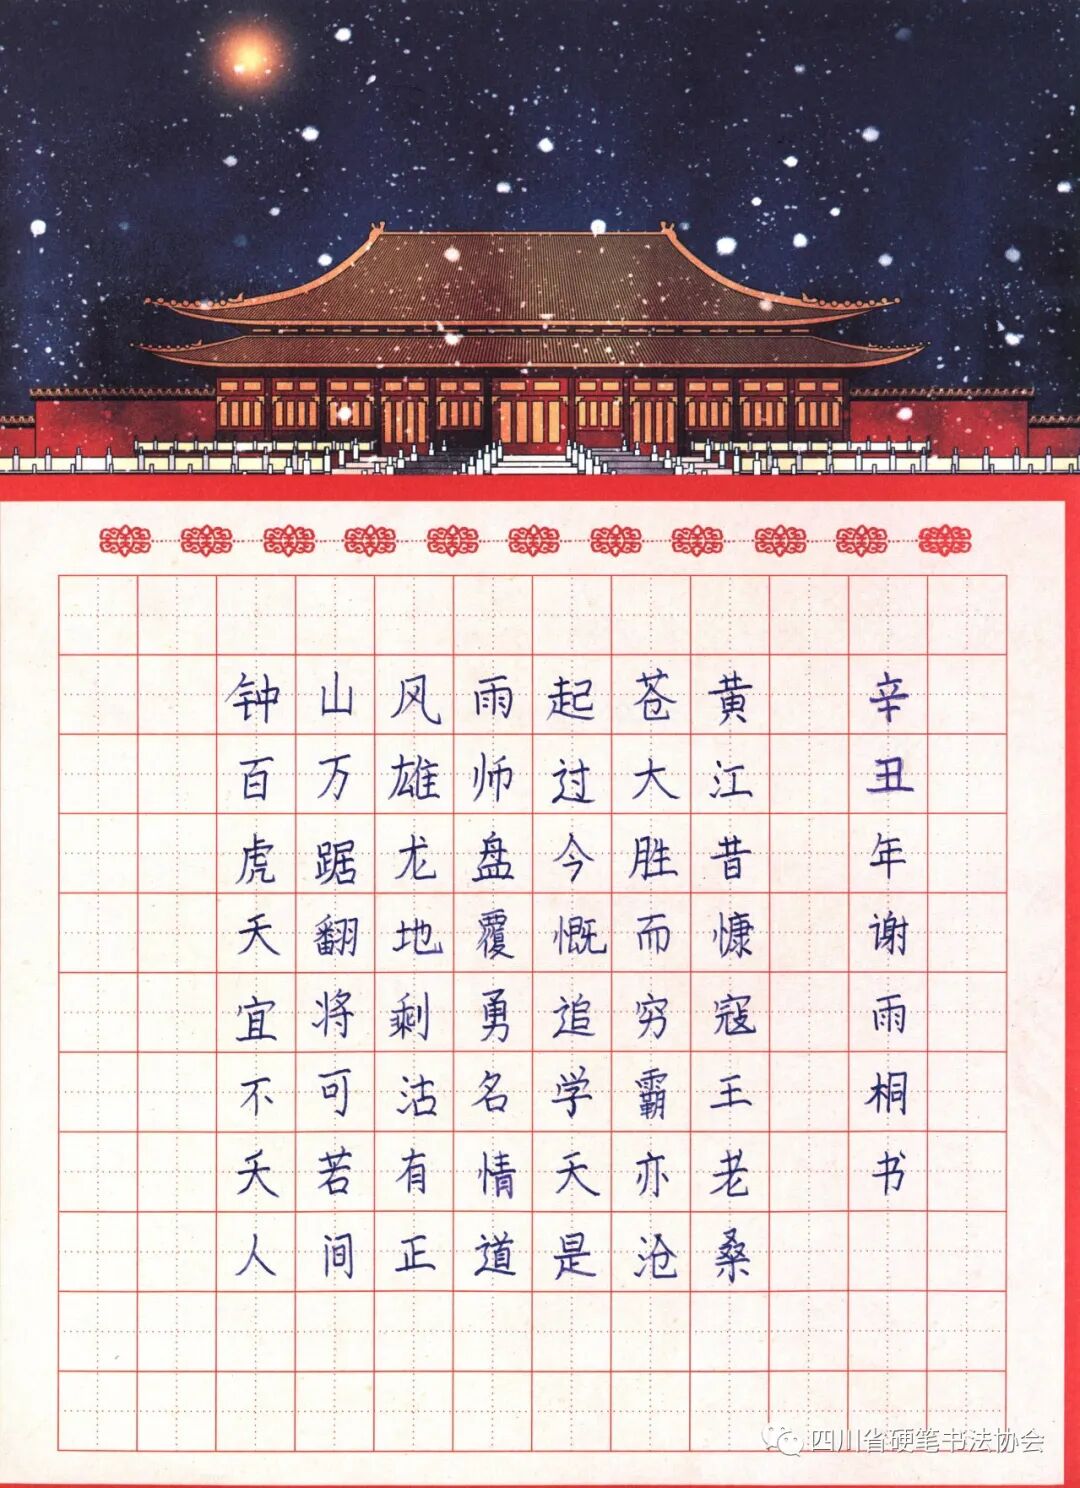 钟山风雨起苍黄
百万雄师过大江
虎踞龙盘今胜昔
天翻地覆慨而慷
宜将剩勇追穷寇
不可沽名学霸王
天若有情天亦老
人间正道是沧桑
辛丑年谢雨桐书
四川省硬笔书法协会